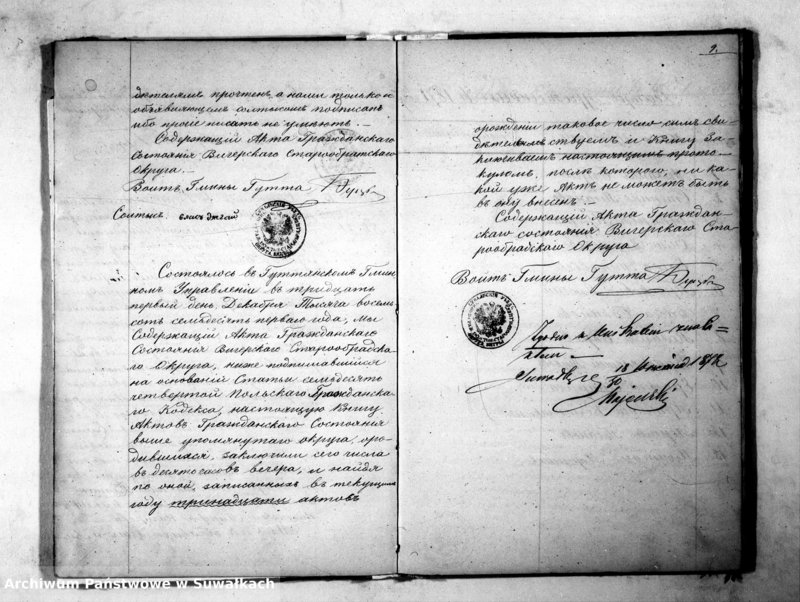 дѣтелямъ прочтенъ, а нами только съ
объявляющемъ солтысомъ подписанъ
ибо прочіе писать не умѣютъ. —
Содержащій Акта Гражданскаго
Состоянія Вигерскаго Старообрадскаго
Округа. —
Войтъ Гмины Гутта
Солтысъ
Состоялось въ Гуттанскомъ Гмин
номъ Управленіи въ тридцать
первый день Декабря Тысяча восемь
сотъ семьдесятъ перваго года, мы
Содержащій Акта Гражданскаго
Состоянія Вигерскаго Старообрадска-
го Округа, ниже подписавшійся
на основаніи Статьи семьдесятъ
четвертой Польскаго Гражданска-
го Кодекса, настоящую Книгу
Актовъ Гражданскаго Состоянія
выше упомянутаго округа, оро-
дившихся, заключили сего числа
въ десять часовъ вечера, и найдя
по оной, записанныхъ въ текущемъ
году тринадцати актовъ
2.
орожденіи таковое число симъ сви-
дѣтельствуемъ и Книгу За-
ключиваемъ настоящимъ прото-
коломъ, послѣ котораго, ни ка-
кой уже Актъ не можетъ быть
въ ону внесенъ. —
Содержащій Акта Граждан-
скаго состоянія Вигерскаго Ста-
рообрадскаго Округа
Войтъ Гмины Гутта
18 1872
Archiwum Państwowe w Suwałkach